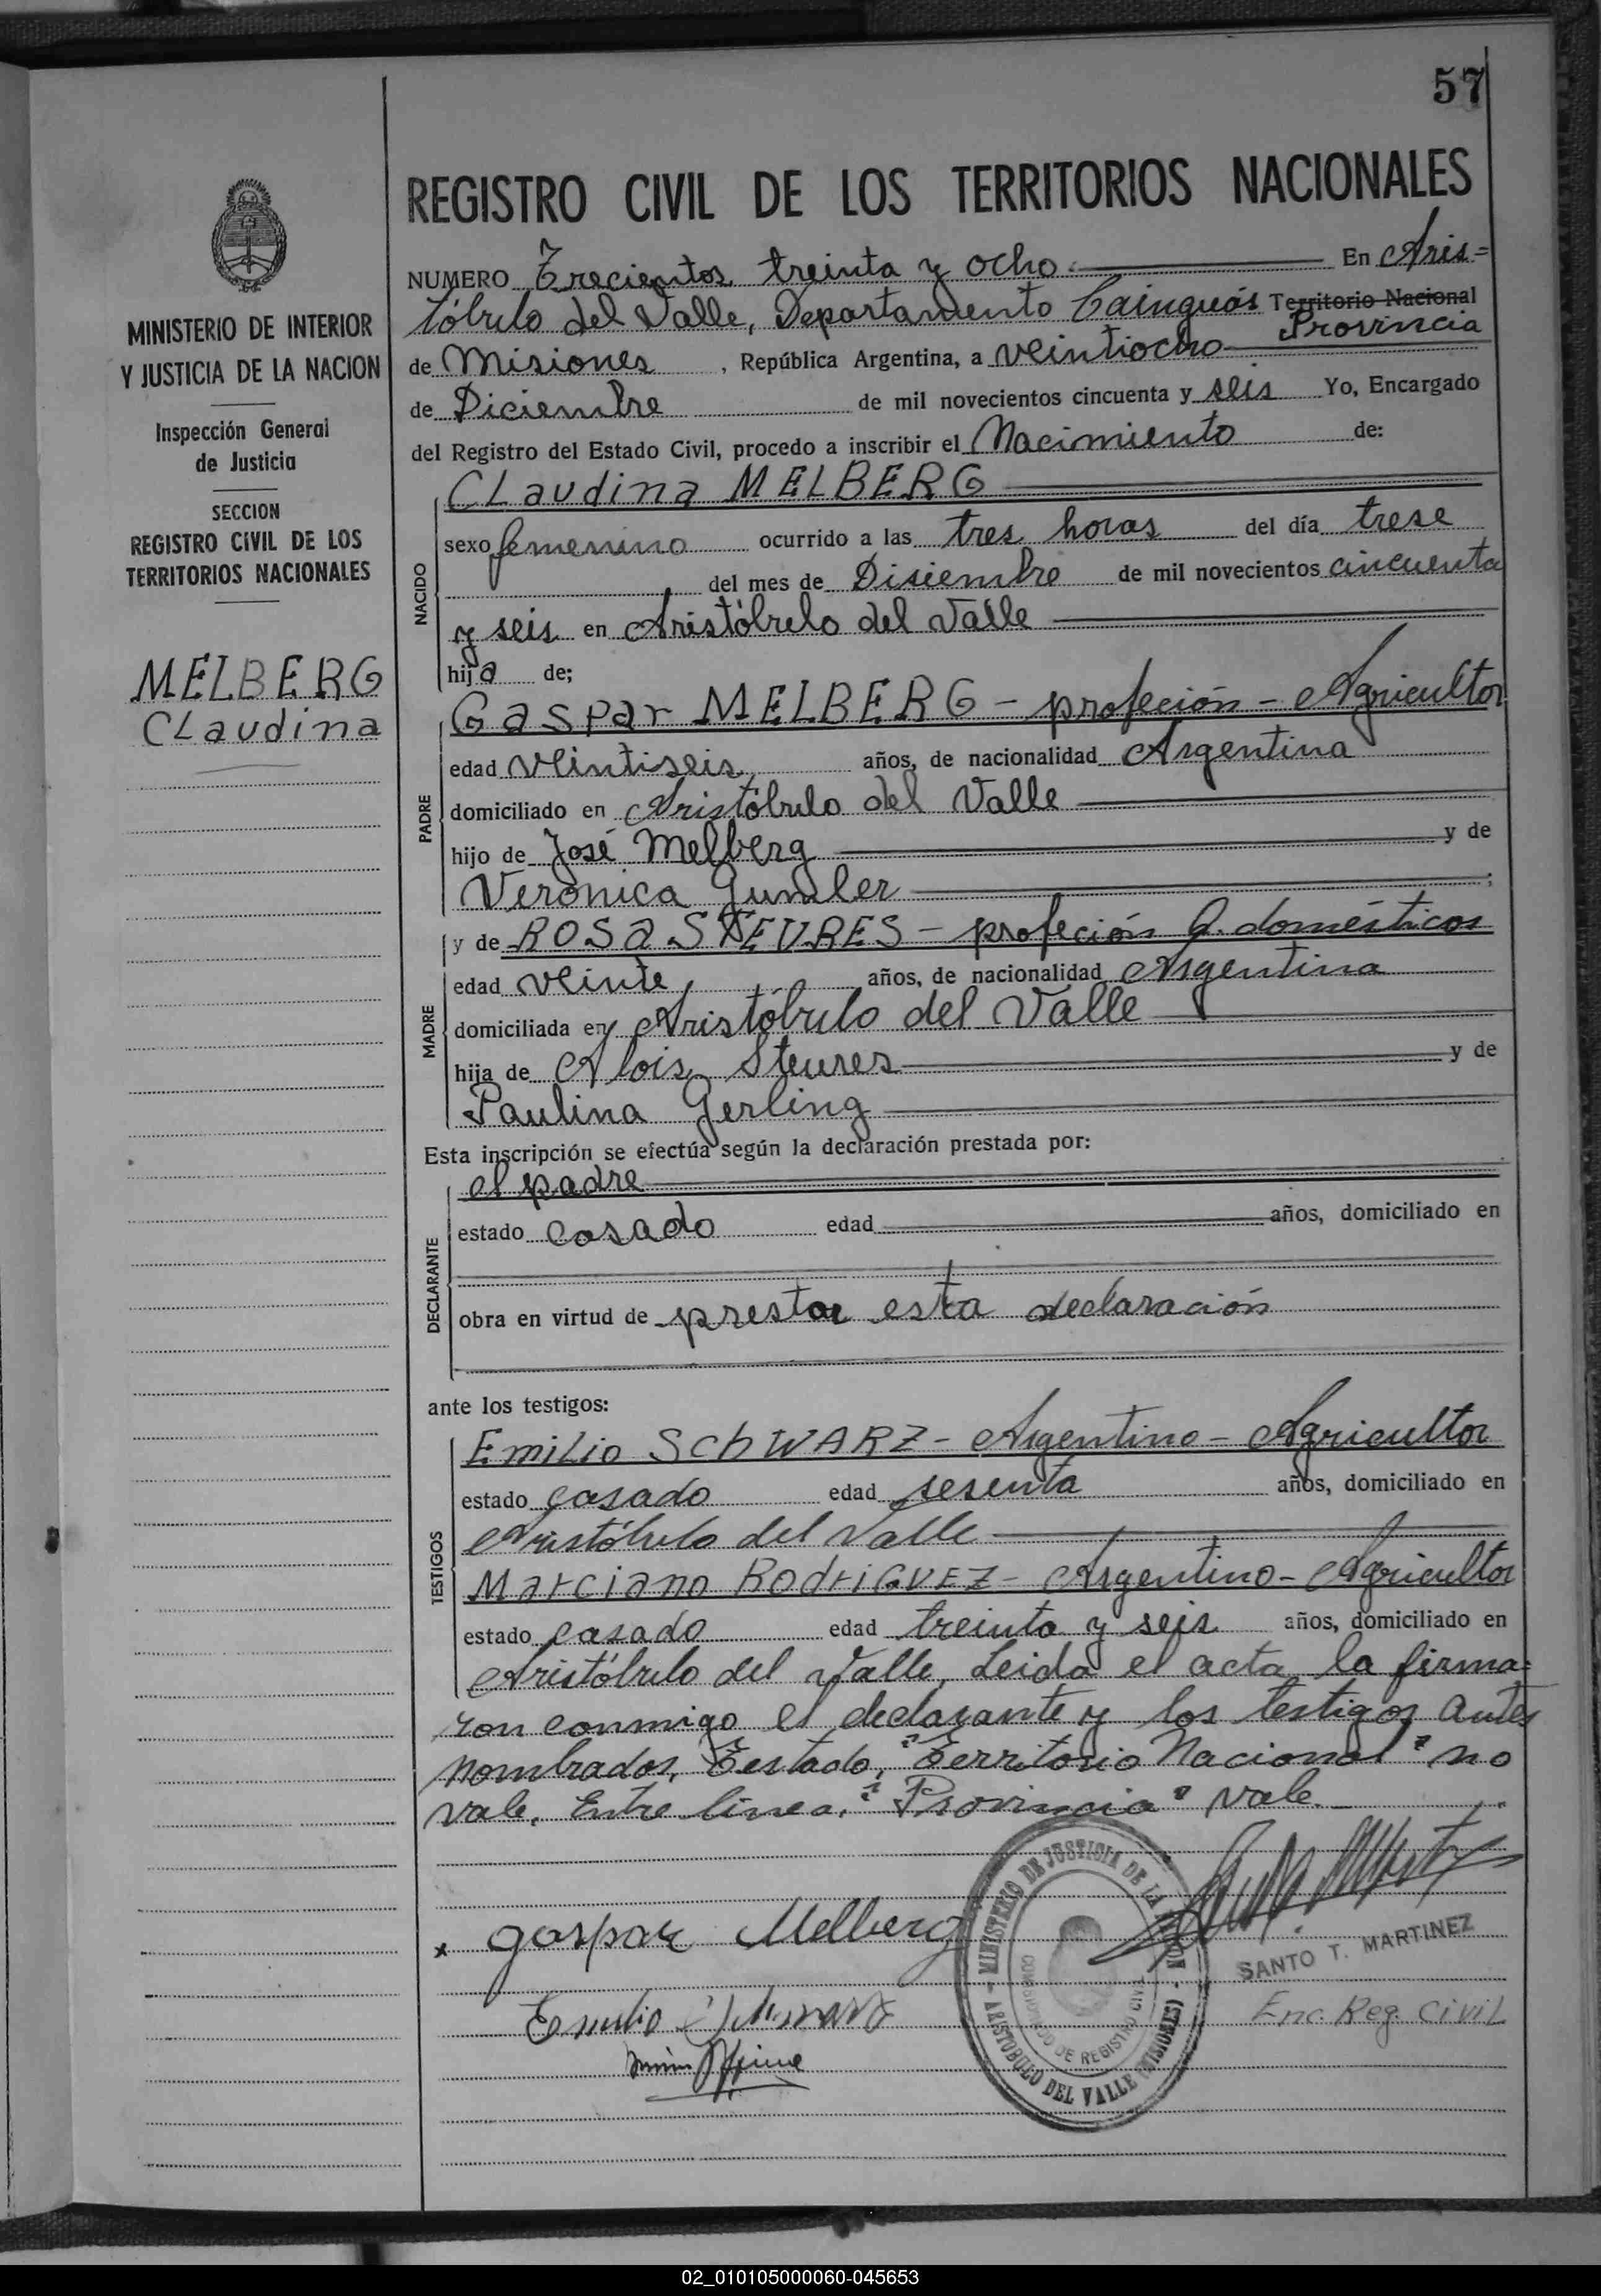 57
REGISTRO CIVIL DE LOS TERRITORIOS NACIONALES
MINISTERIO DE INTERIOR
Y JUSTICIA DE LA NACION
Inspección General
de Justicia
SECCION
REGISTRO CIVIL DE LOS
TERRITORIOS NACIONALES
MELBERG
Claudina
NUMERO Trecientos treinta y ocho En Aris=
tóbulo del Valle, Departamento Cainguás Territorio Nacional
Provincia
de Misiones, República Argentina, a veintiocho
de Diciembre de mil novecientos cincuenta y seis Yo, Encargado
del Registro del Estado Civil, procedo a inscribir el Nacimiento de:
NACIDO
Claudina MELBERG
sexo femenino ocurrido a las tres horas del día trese
del mes de Disiembre de mil novecientos cincuenta
y seis en Aristóbulo del Valle
hija de;
PADRE
Gaspar MELBERG - profeción - Agricultor
edad veintiseis, años, de nacionalidad Argentina
domiciliado en Aristóbulo del Valle
hijo de José Melberg y de
Verónica Gumler;
MADRE
y de ROSA STEVRES - profeción Q. domésticos
edad veinte años, de nacionalidad Argentina
domiciliada en Aristóbulo del Valle
hija de Alois Steures y de
Paulina Gerling
Esta inscripción se efectúa según la declaración prestada por:
DECLARANTE
el padre
estado casado edad años, domiciliado en
obra en virtud de prestar esta declaración
ante los testigos:
TESTIGOS
Emilio SchWARZ - Argentino - Agricultor
estado casado edad sesenta años, domiciliado en
Aristóbulo del Valle
Marciano RodriGVEZ - Argentino - Agricultor
estado casado edad treinta y seis años, domiciliado en
Aristóbulo del Valle, Leida el acta la firma=
ron conmigo el declarante y los testigos antes
nombrados, Testado, "Territorio Nacional" no
vale, Entre linea, "Provincia" vale.
x gaspar Melberg
MINISTERIO DE JUSTICIA DE LA NACION - ARISTOBULO DEL VALLE (MISIONES) -
DE REGISTRO CIVIL
SANTO T. MARTINEZ
Enc. Reg. Civil
Emilio
02_010105000060-045653